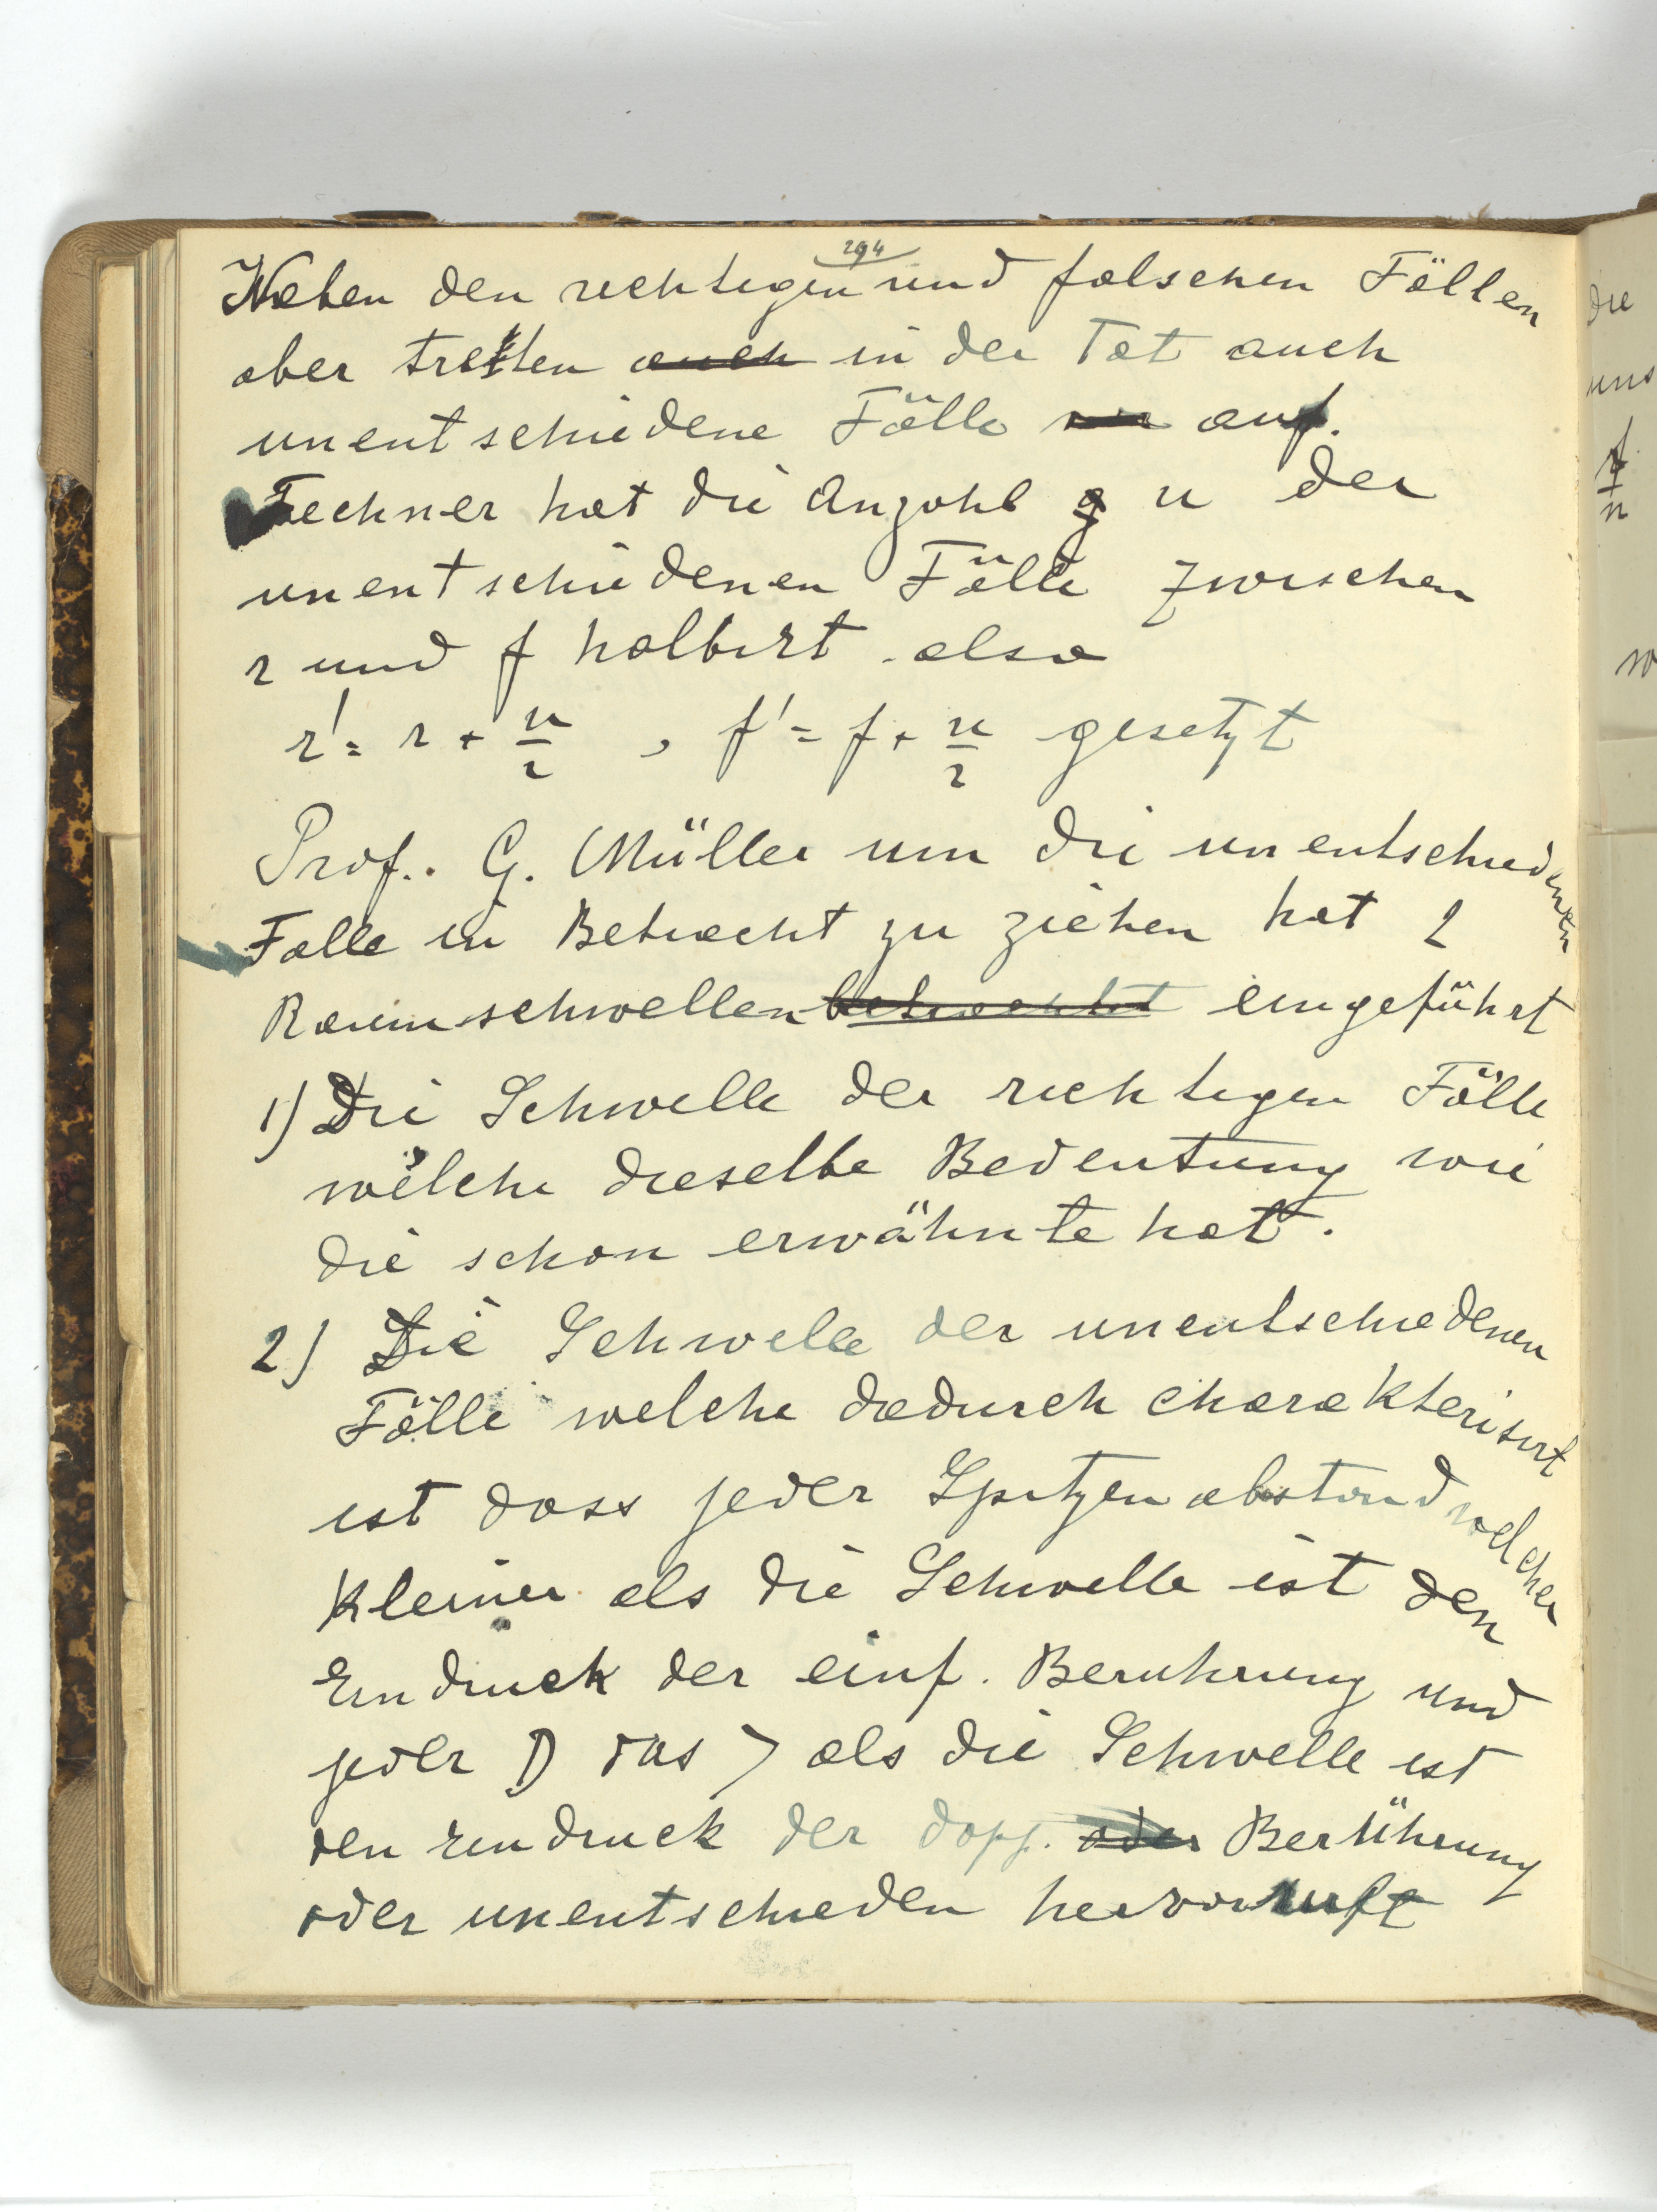 294
Neben den richtigen und falschen Fällen
aber treten auch in der Tat auch
unentschiedene Fälle auf.
Fechner hat die Anzahl u der
unentschiedenen Fälle zwischen
r und f halbirt also
r' = r + u/2 , f' = f + u/2 gesetzt
Prof. G. Müller um die unentschiedenen
Falle in Betracht zu ziehen hat 2
Raumschwellen betrachtet eingeführt
1) Die Schwelle der richtigen Fälle
welche dieselbe Bedeutung wie
die schon erwähnte hat.
2) Die Schwelle der unentschiedenen
Fälle welche dadurch charakterisirt
ist dass jeder Spitzenabstand welcher
kleiner als die Schwelle ist den
Eindruck der einf. Beruhrung und
jeder D das > als die Schwelle ist
den Eindruck der dopp. oder Berührung
oder unentschieden hervorruft
die
uns
f
n